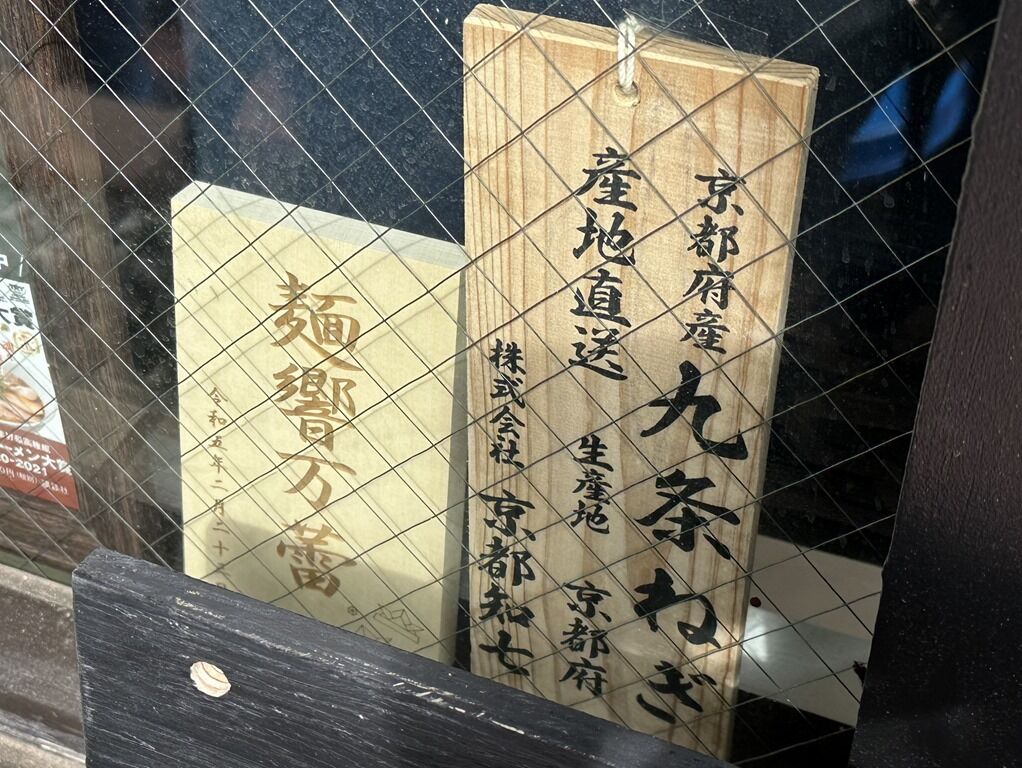 京都府産 九条ねぎ
産地直送 生産地 京都府
株式会社 京都知七
麺響万蕾
令和五年二月二十
大賞
ーメン大賞
0-2021